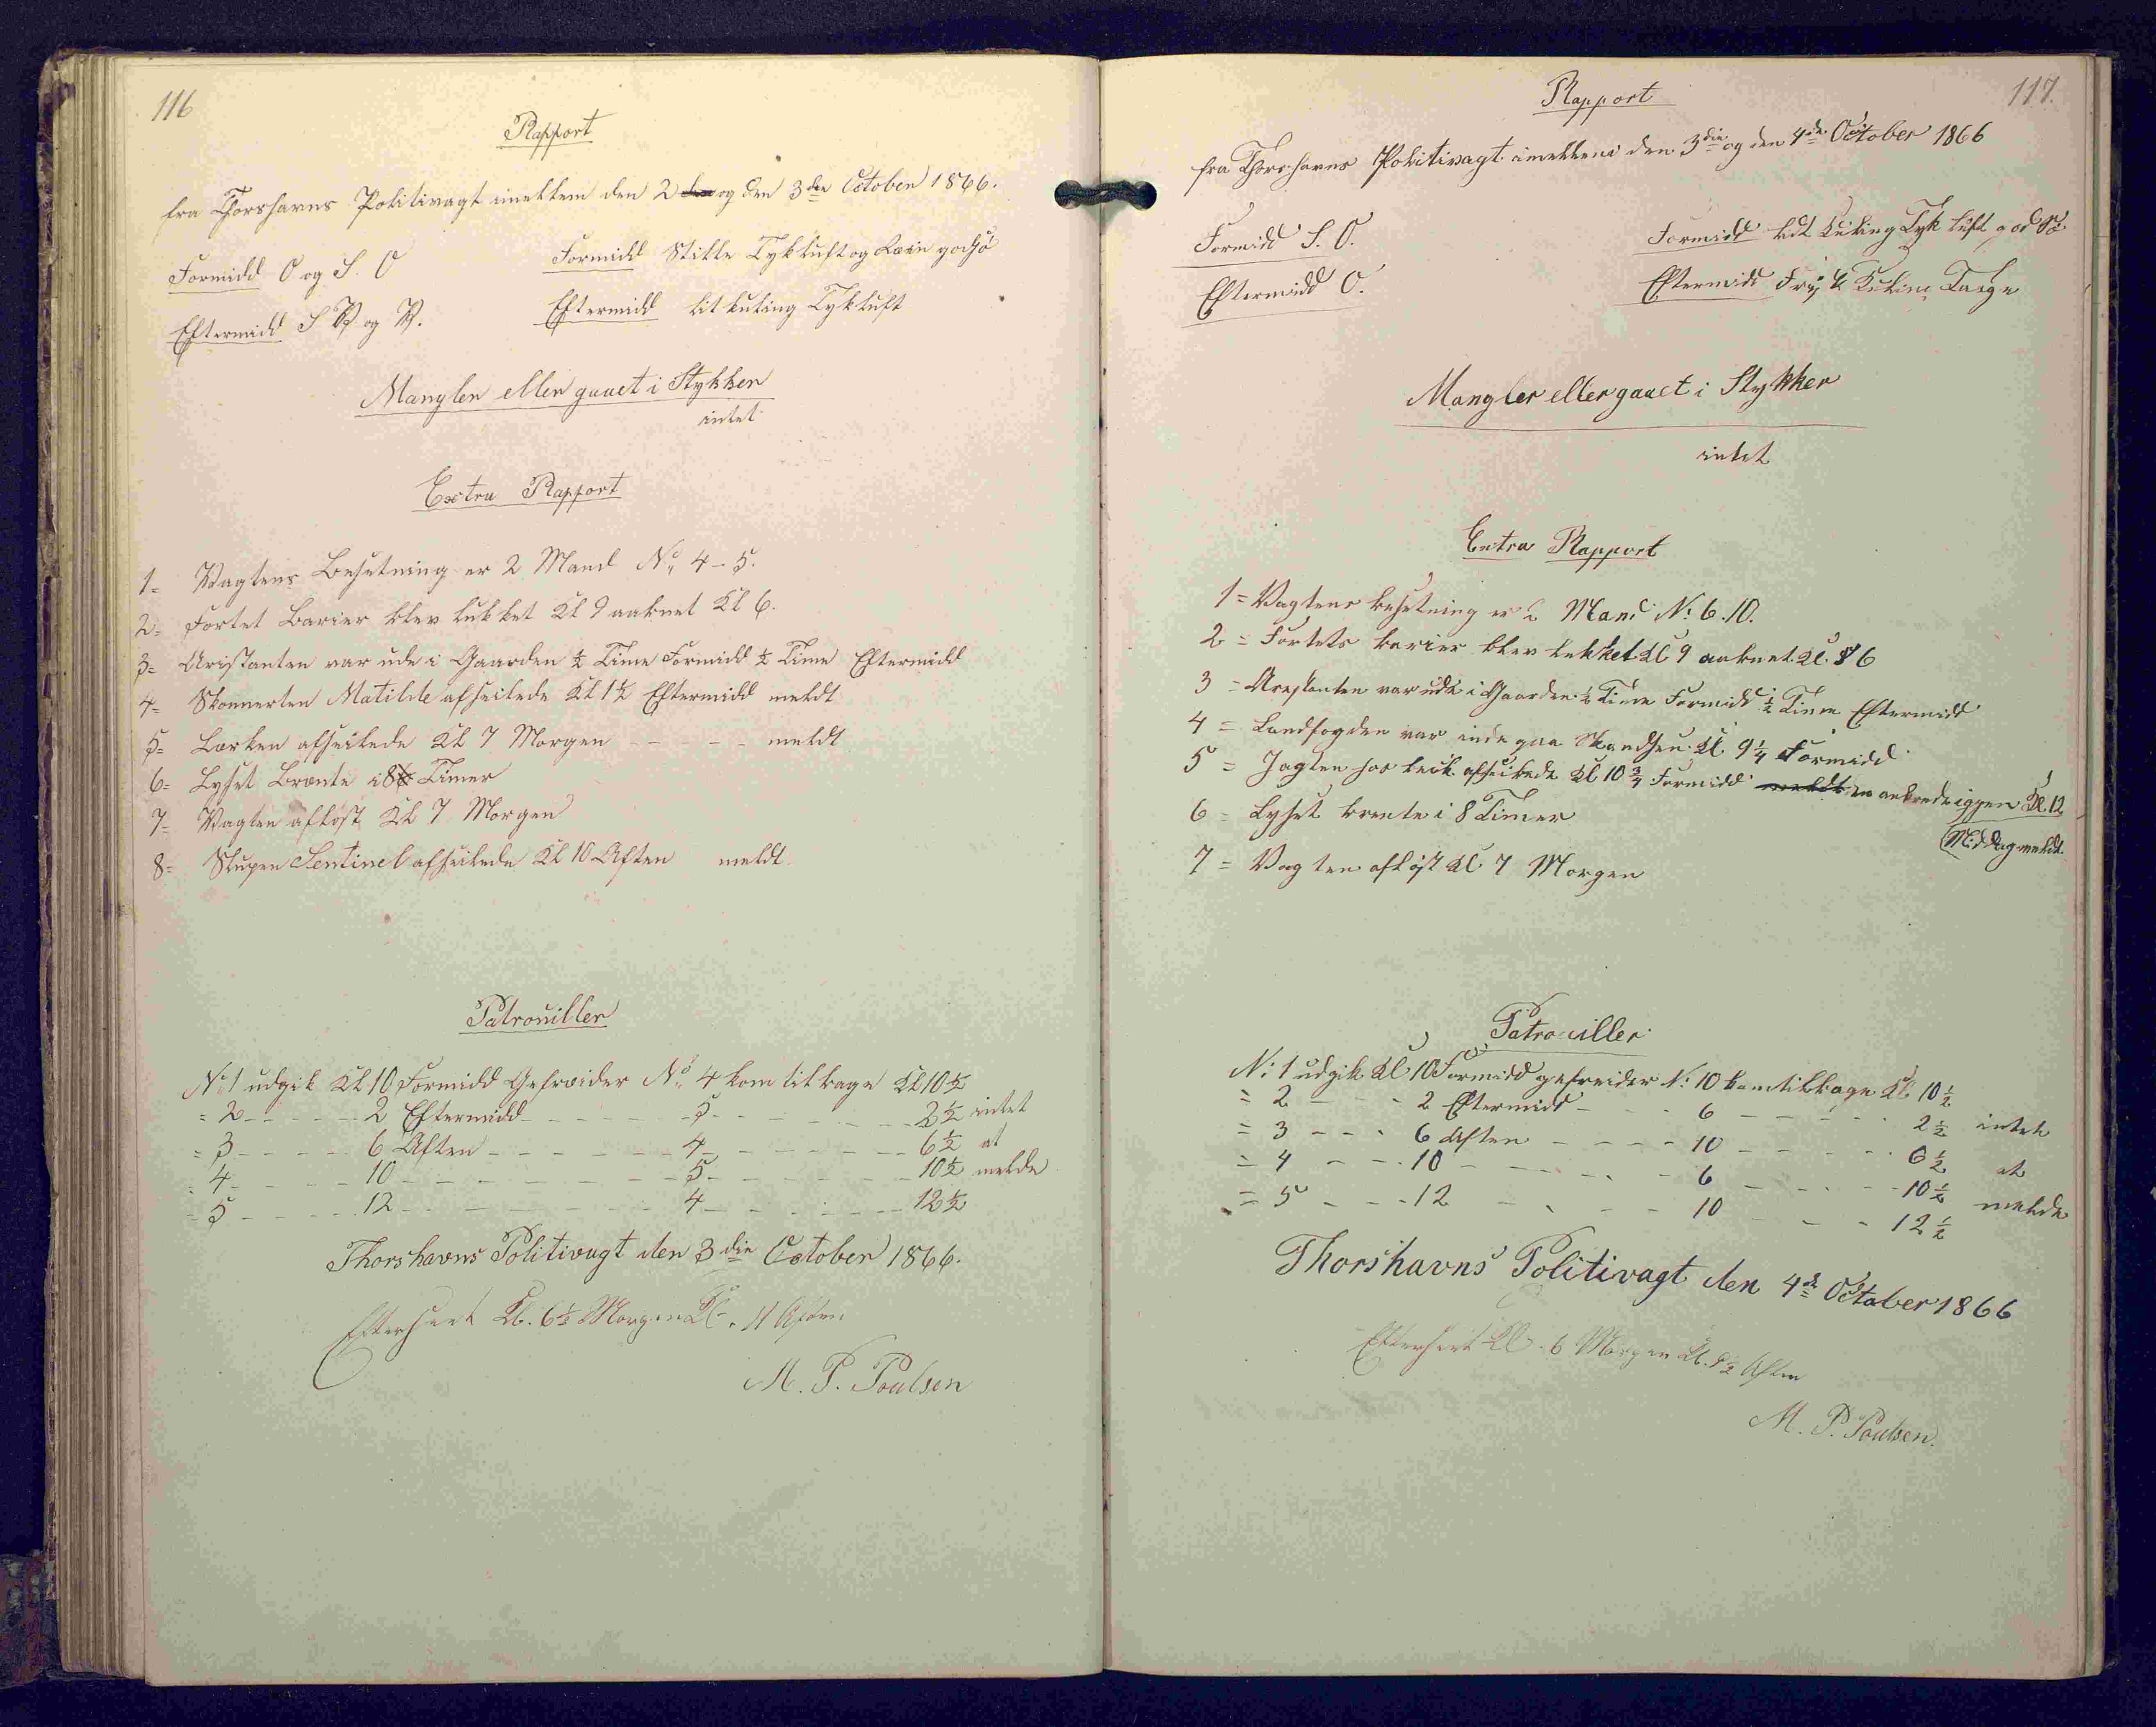 116
Rapport
fra Thorshavns Politivagt imellem den 2 og den 3die October 1866.
Formidd O og S. O
Formidd Stille Tykluft og Regn godsø
Eftermidd S V og V.
Eftermidd lit kuling Tykluft
Mangler eller gaaet i Stykker
intet
Extra Rapport
1= Vagtens Besetning er 2 Mand No 4-5.
2= Fortet Barier blev lukket Kl 9 aabnet Kl 6.
3= Aristanten var ude i Gaarden ½ Time Formidd ½ Time Eftermidd
4= Skonnerten Matilde afseilede Kl 1½ Eftermidd meldt
5= Lærken afseilede Kl 7 Morgen - - - - - meldt
6= Lyset Brænte i 8 Timer
7= Vagten afløst Kl 7 Morgen
8= Slupen Sentinel afseilede Kl 10 Aften meldt
Patrouiller
No 1 udgik Kl 10 Formidd Gefreider No 4 kom tilbage Kl 10½
= 2 - - - - 2 Eftermidd - - - - 5 - - - - 2½ intet
= 3 - - - - 6 Aften - - - - 4 - - - - 6½ at
= 4 - - - - 10 - - - - 5 - - - - 10½ melde
= 5 - - - - 12 - - - - 4 - - - - 12½
Thorshavns Politivagt den 3die October 1866.
Efterseet Kl. 6½ Morgen Kl. 11 Aften
M. P. Poulsen
117.
Rapport
fra Thorshavns Politivagt imellem den 3die og den 4de October 1866
Formidd S. O.
Formidd lidt Kuling Tyk luft god Sø
Eftermidd O.
Eftermidd Frisk Kuling Taage
Mangler eller gaaet i Stykker
intet
Extra Rapport
1 = Vagtens besetning er 2 Mand No: 6. 10.
2 = Fortets barier blev lukket Kl 9 aabnet Kl. 6
3 = Arestanten var ude i Gaarden ½ Time Formidd ½ Time Eftermidd
4 = Landfogden var inde paa Skandsen Kl 9¼ Formidd
5 = Jagten afseilede Kl 10¾ Formidd ankrede igjen Kl. 12
Middag meldt.
6 = Lyset brente i 8 Timer
7 = Vagten afløst Kl. 7 Morgen
Patrouiller
No: 1 udgik Kl 10 Formidd gefreider No: 10 kom tilbage Kl 10½
= 2 - - - 2 Eftermidd - - - 6 - - - 2½ intet
= 3 - - - 6 Aften - - - - 10 - - - 6½ at
= 4 - - - 10 - - - - 6 - - - - 10½ melde
= 5 - - - 12 - - - - 10 - - - 12½
Thorshavns Politivagt den 4de October 1866
Efterseet Kl. 6 Morgen Kl. 9½ Aften
M. P. Poulsen.